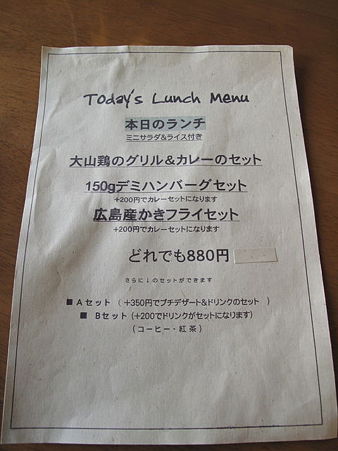 Today's Lunch Menu
本日のランチ
ミニサラダ&ライス付き
大山鶏のグリル&カレーのセット
150gデミハンバーグセット
+200円でカレーセットになります
広島産かきフライセット
+200円でカレーセットになります
どれでも880円
さらに↓のセットができます
■ Aセット (+350円でプチデザート&ドリンクのセット )
■ Bセット(+200でドリンクがセットになります)
(コーヒー・紅茶)